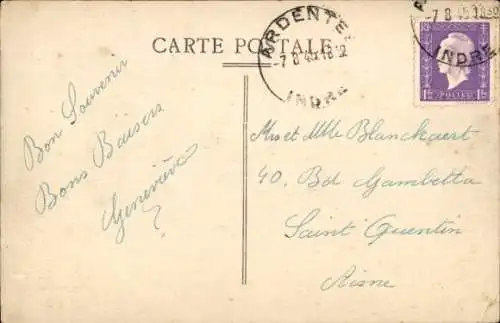 CARTE POSTALE
ARDENTES
7 8 45 18 30
INDRE
7 8 45 18 30
INDRE
RF
POSTES
Bon Souvenir
Bons Baisers
Geneviève
Mrs et Mlle Blanckaert
40, Bd Gambetta
Saint Quentin
Aisne